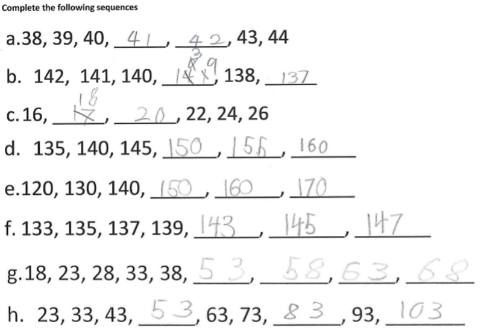 Complete the following sequences
a.38, 39, 40, 41, 42, 43, 44
b. 142, 141, 140, 139, 138, 137
c.16, 18, 20, 22, 24, 26
d. 135, 140, 145, 150, 155, 160
e.120, 130, 140, 150, 160, 170
f. 133, 135, 137, 139, 143, 145, 147
g.18, 23, 28, 33, 38, 53, 58, 63, 68
h. 23, 33, 43, 53, 63, 73, 83, 93, 103